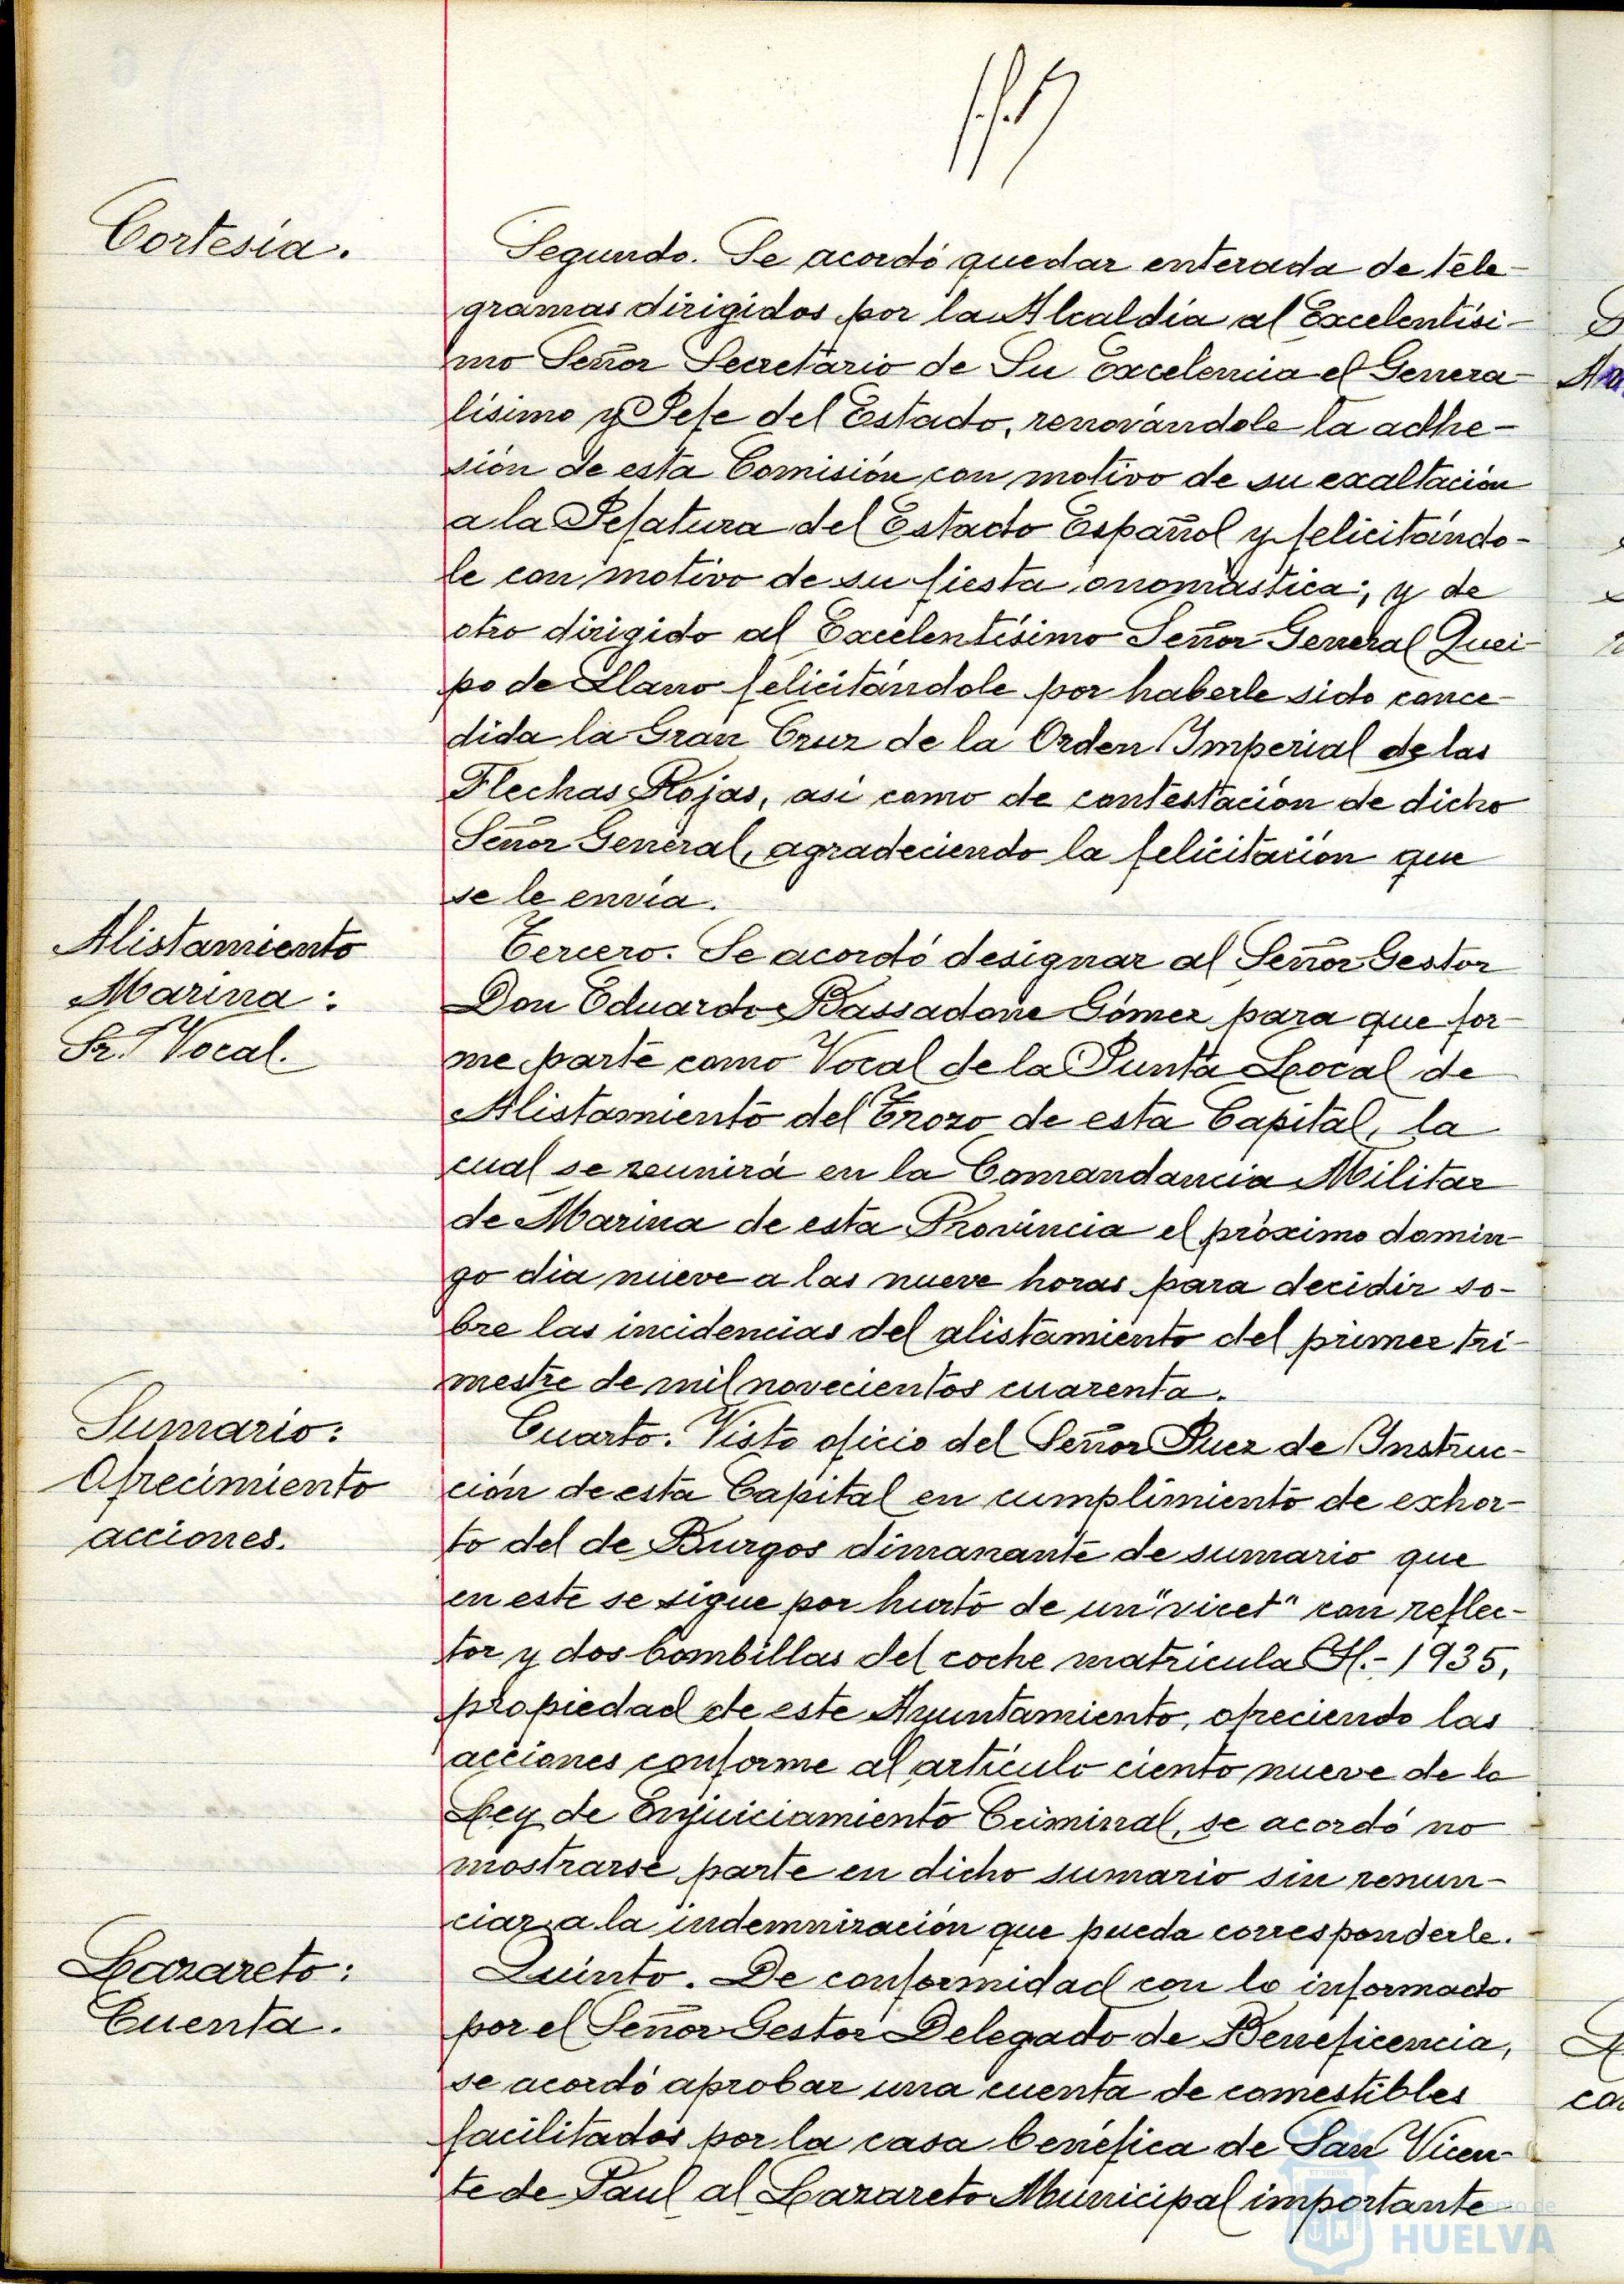 Cortesía.
Segundo. Se acordó quedar enterada de tele-
gramas dirigidos por la Alcaldía al Excelentísi-
mo Señor Secretario de Su Excelencia el Genera-
lísimo y Jefe del Estado, renovándole la adhe-
sión de esta Comisión con motivo de su exaltación
a la Jefatura del Estado Español y felicitándo-
le con motivo de su fiesta onomástica; y de
otro dirigido al Excelentísimo Señor General Quei-
po de Llano felicitándole por haberle sido conce-
dida la Gran Cruz de la Orden Imperial de las
Flechas Rojas, así como de contestación de dicho
Señor General, agradeciendo la felicitación que
se le envía.
Alistamiento
Marina:
Sr. Vocal.
Tercero. Se acordó designar al Señor Gestor
Don Eduardo Bassadone Gómez para que for-
me parte como Vocal de la Junta Local de
Alistamiento del Trozo de esta Capital, la
cual se reunirá en la Comandancia Militar
de Marina de esta Provincia el próximo domin-
go día nueve a las nueve horas para decidir so-
bre las incidencias del alistamiento del primer tri-
mestre de mil novecientos cuarenta.
Sumario:
Ofrecimiento
acciones.
Cuarto. Visto oficio del Señor Juez de Instruc-
ción de esta Capital en cumplimiento de exhor-
to del de Burgos dimanante de sumario que
en este se sigue por hurto de un "vicet" con reflec-
tor y dos bombillas del coche matrícula H.-1935,
propiedad de este Ayuntamiento, ofreciendo las
acciones conforme al artículo ciento nueve de la
Ley de Enjuiciamiento Criminal, se acordó no
mostrarse parte en dicho sumario sin renun-
ciar a la indemnización que pueda corresponderle.
Lazareto:
Cuenta.
Quinto. De conformidad con lo informado
por el Señor Gestor Delegado de Beneficencia,
se acordó aprobar una cuenta de comestibles
facilitados por la casa benéfica de San Vicen-
te de Paul al Lazareto Municipal importante
HUELVA